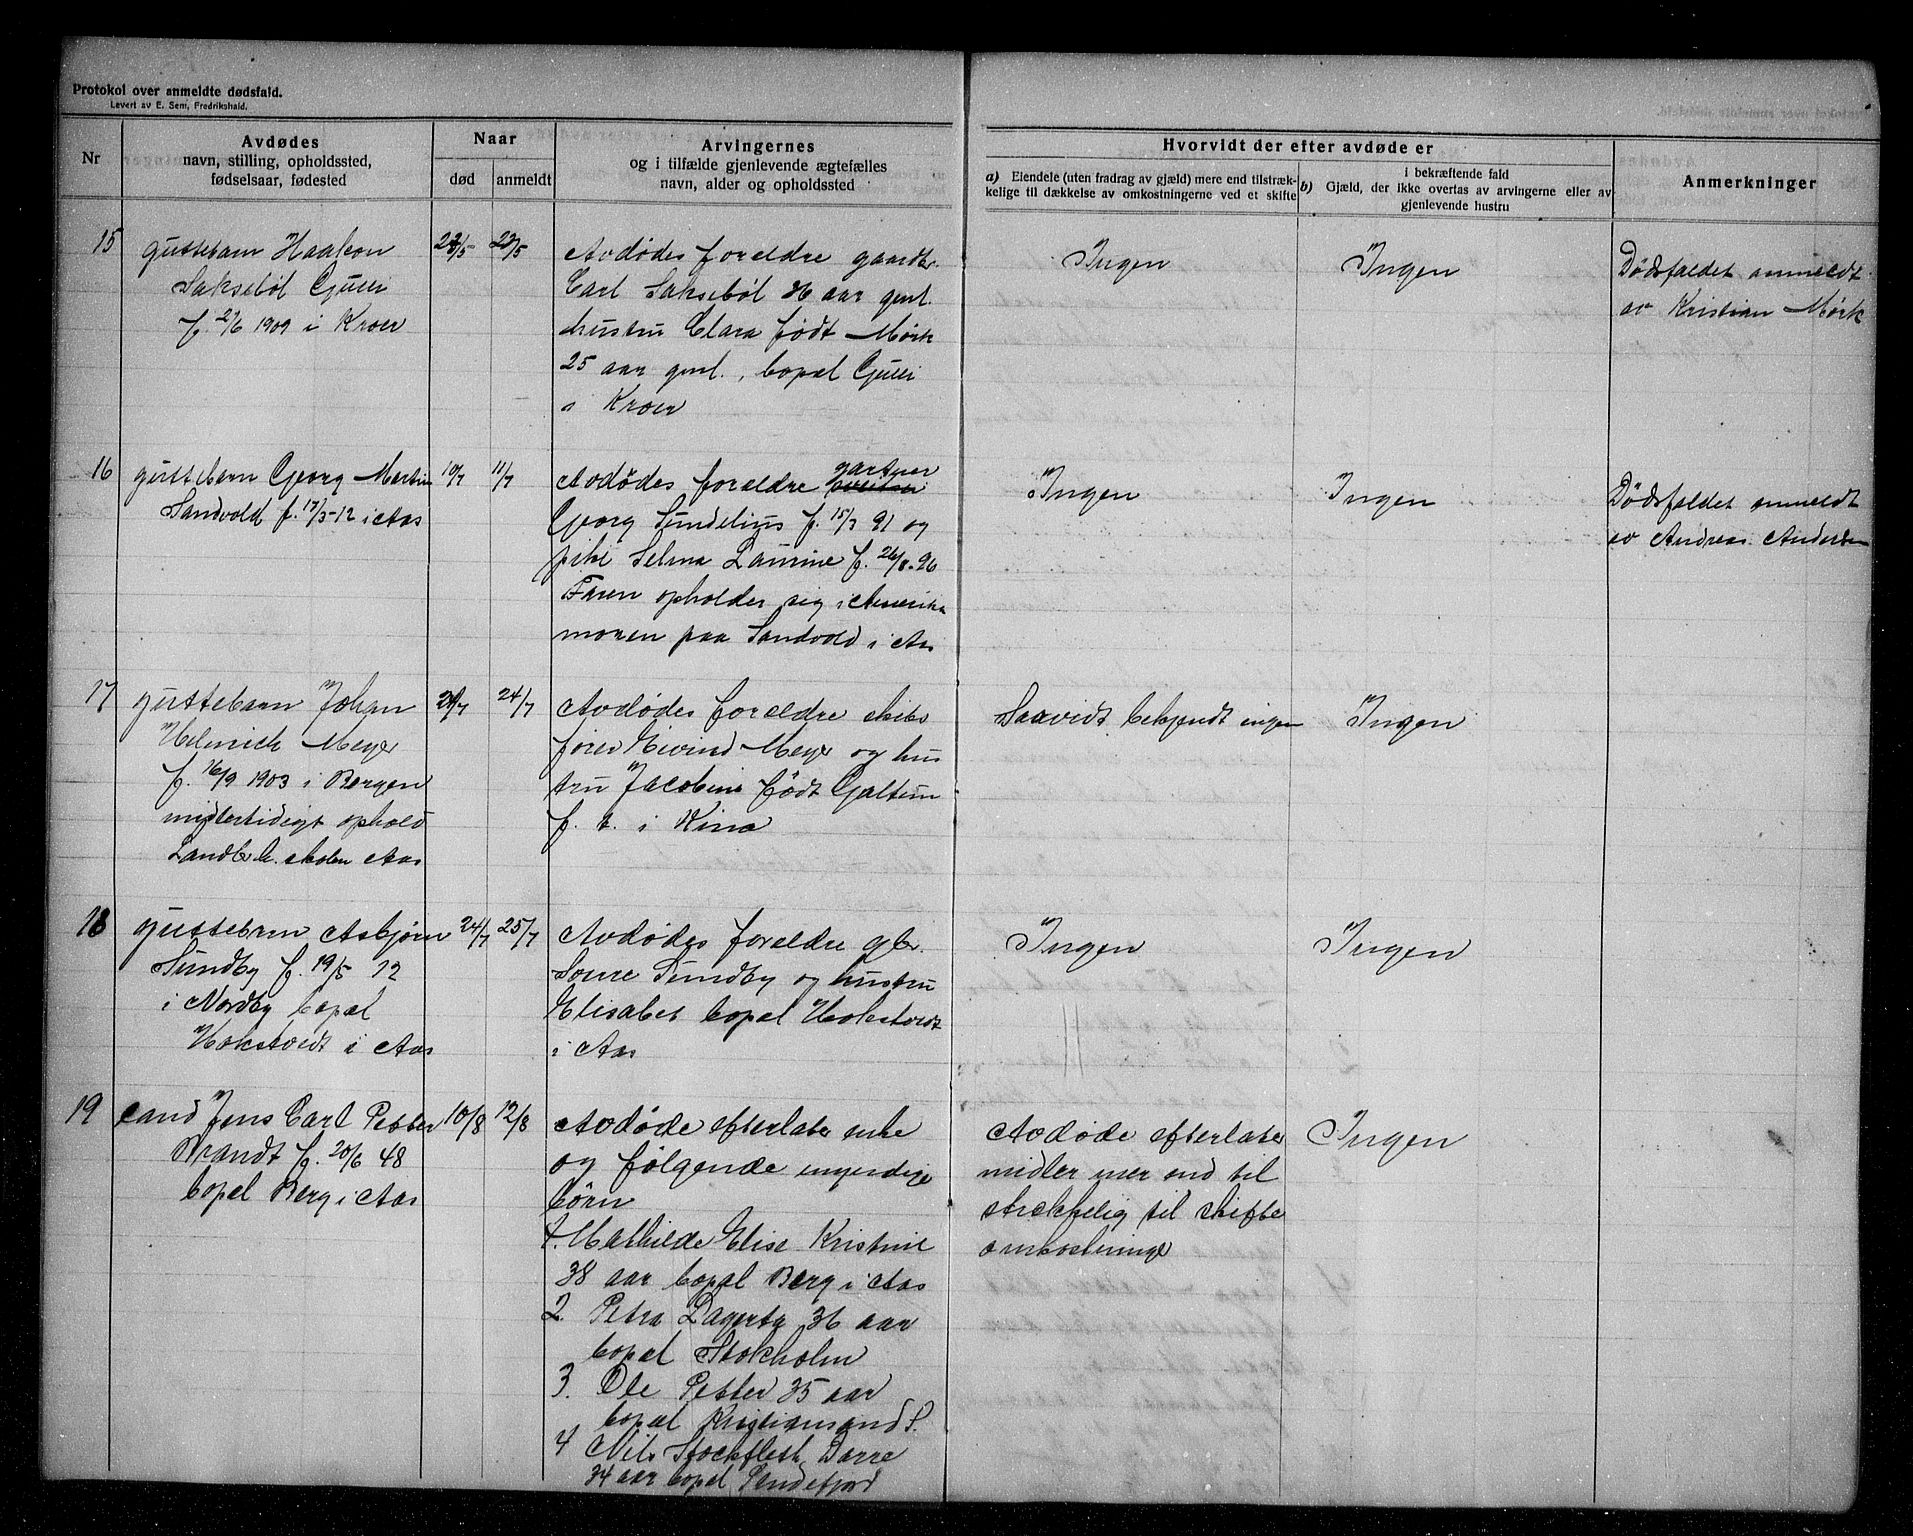 Protokol over anmeldte dødsfald.
Levert av E. Sem, Fredrikshald.
Nr
Avdødes
navn, stilling, opholdssted,
fødselsaar, fødested
Naar
død
anmeldt
Arvingernes
og i tilfælde gjenlevende ægtefælles
navn, alder og opholdssted
Hvorvidt der efter avdøde er
a) Eiendele (uten fradrag av gjæld) mere end tilstræk-
kelige til dækkelse av omkostningerne ved et skifte
i bekræftende fald
b) Gjæld, der ikke overtas av arvingerne eller av
gjenlevende hustru
Anmerkninger
15
guttebarn Haakon
Saksebøl Gjulli
f. 27/6 1909 i Kroer
23/5
Avdødes foreldre gaardbr.
Carl Saksebøl 36 aar gml.
hustru Clara født Mørk
25 aar gml., bopæl Gjulli
i Kroer
Ingen
Ingen
Dødsfaldet anmeldt
av Kristian Mørk
16
guttebarn Georg Martin
Sandvold f. 17/3-12 i Aas
10/7
11/7
Avdødes foreldre gartner
Georg Sundelius f. 15/3 91 og
pike Selma Laurine f. 26/8-96
Faren opholder sig i Amerika
moren paa Sandvold i Aas
Ingen
Ingen
Dødsfaldet anmeldt
av Andreas Andersen
17
guttebarn Johan
Helmich Meyer
f. 16/9 1903 i Bergen
midlertidigt ophold
Landbr. h. skolen Aas
24/7
Avdødes foreldre skibs
fører Eivind Meyer og hus
tru Jacobine født Galtung
f. t. i Kina
Saavidt bekjendt ingen
Ingen
18
guttebarn Asbjørn
Sundby f. 19/5 12
i Nordby bopæl
Holstvedt i Aas
24/7
25/7
Avdødes foreldre gbr.
Sundby og hustru
Elisabet bopæl Holstvedt
i Aas
Ingen
Ingen
19
cand Jens Carl Petter
Brandt f. 20/6 48
bopæl Berg i Aas
10/8
12/8
Avdøde efterlater enke
og følgende myndige
børn
1. Mathilde Elise Kristine
38 aar bopæl Berg i Aas
2. Petra Dagerta 36 aar
bopæl Stokholm
3. Ole Petter 35 aar
bopæl Kristiansand S.
4 Nils Stockfleth Darre
34 aar bopæl Sandefjord
Avdøde efterlater
midler mer end til
strækkelig til skifte
omkostninger
Ingen